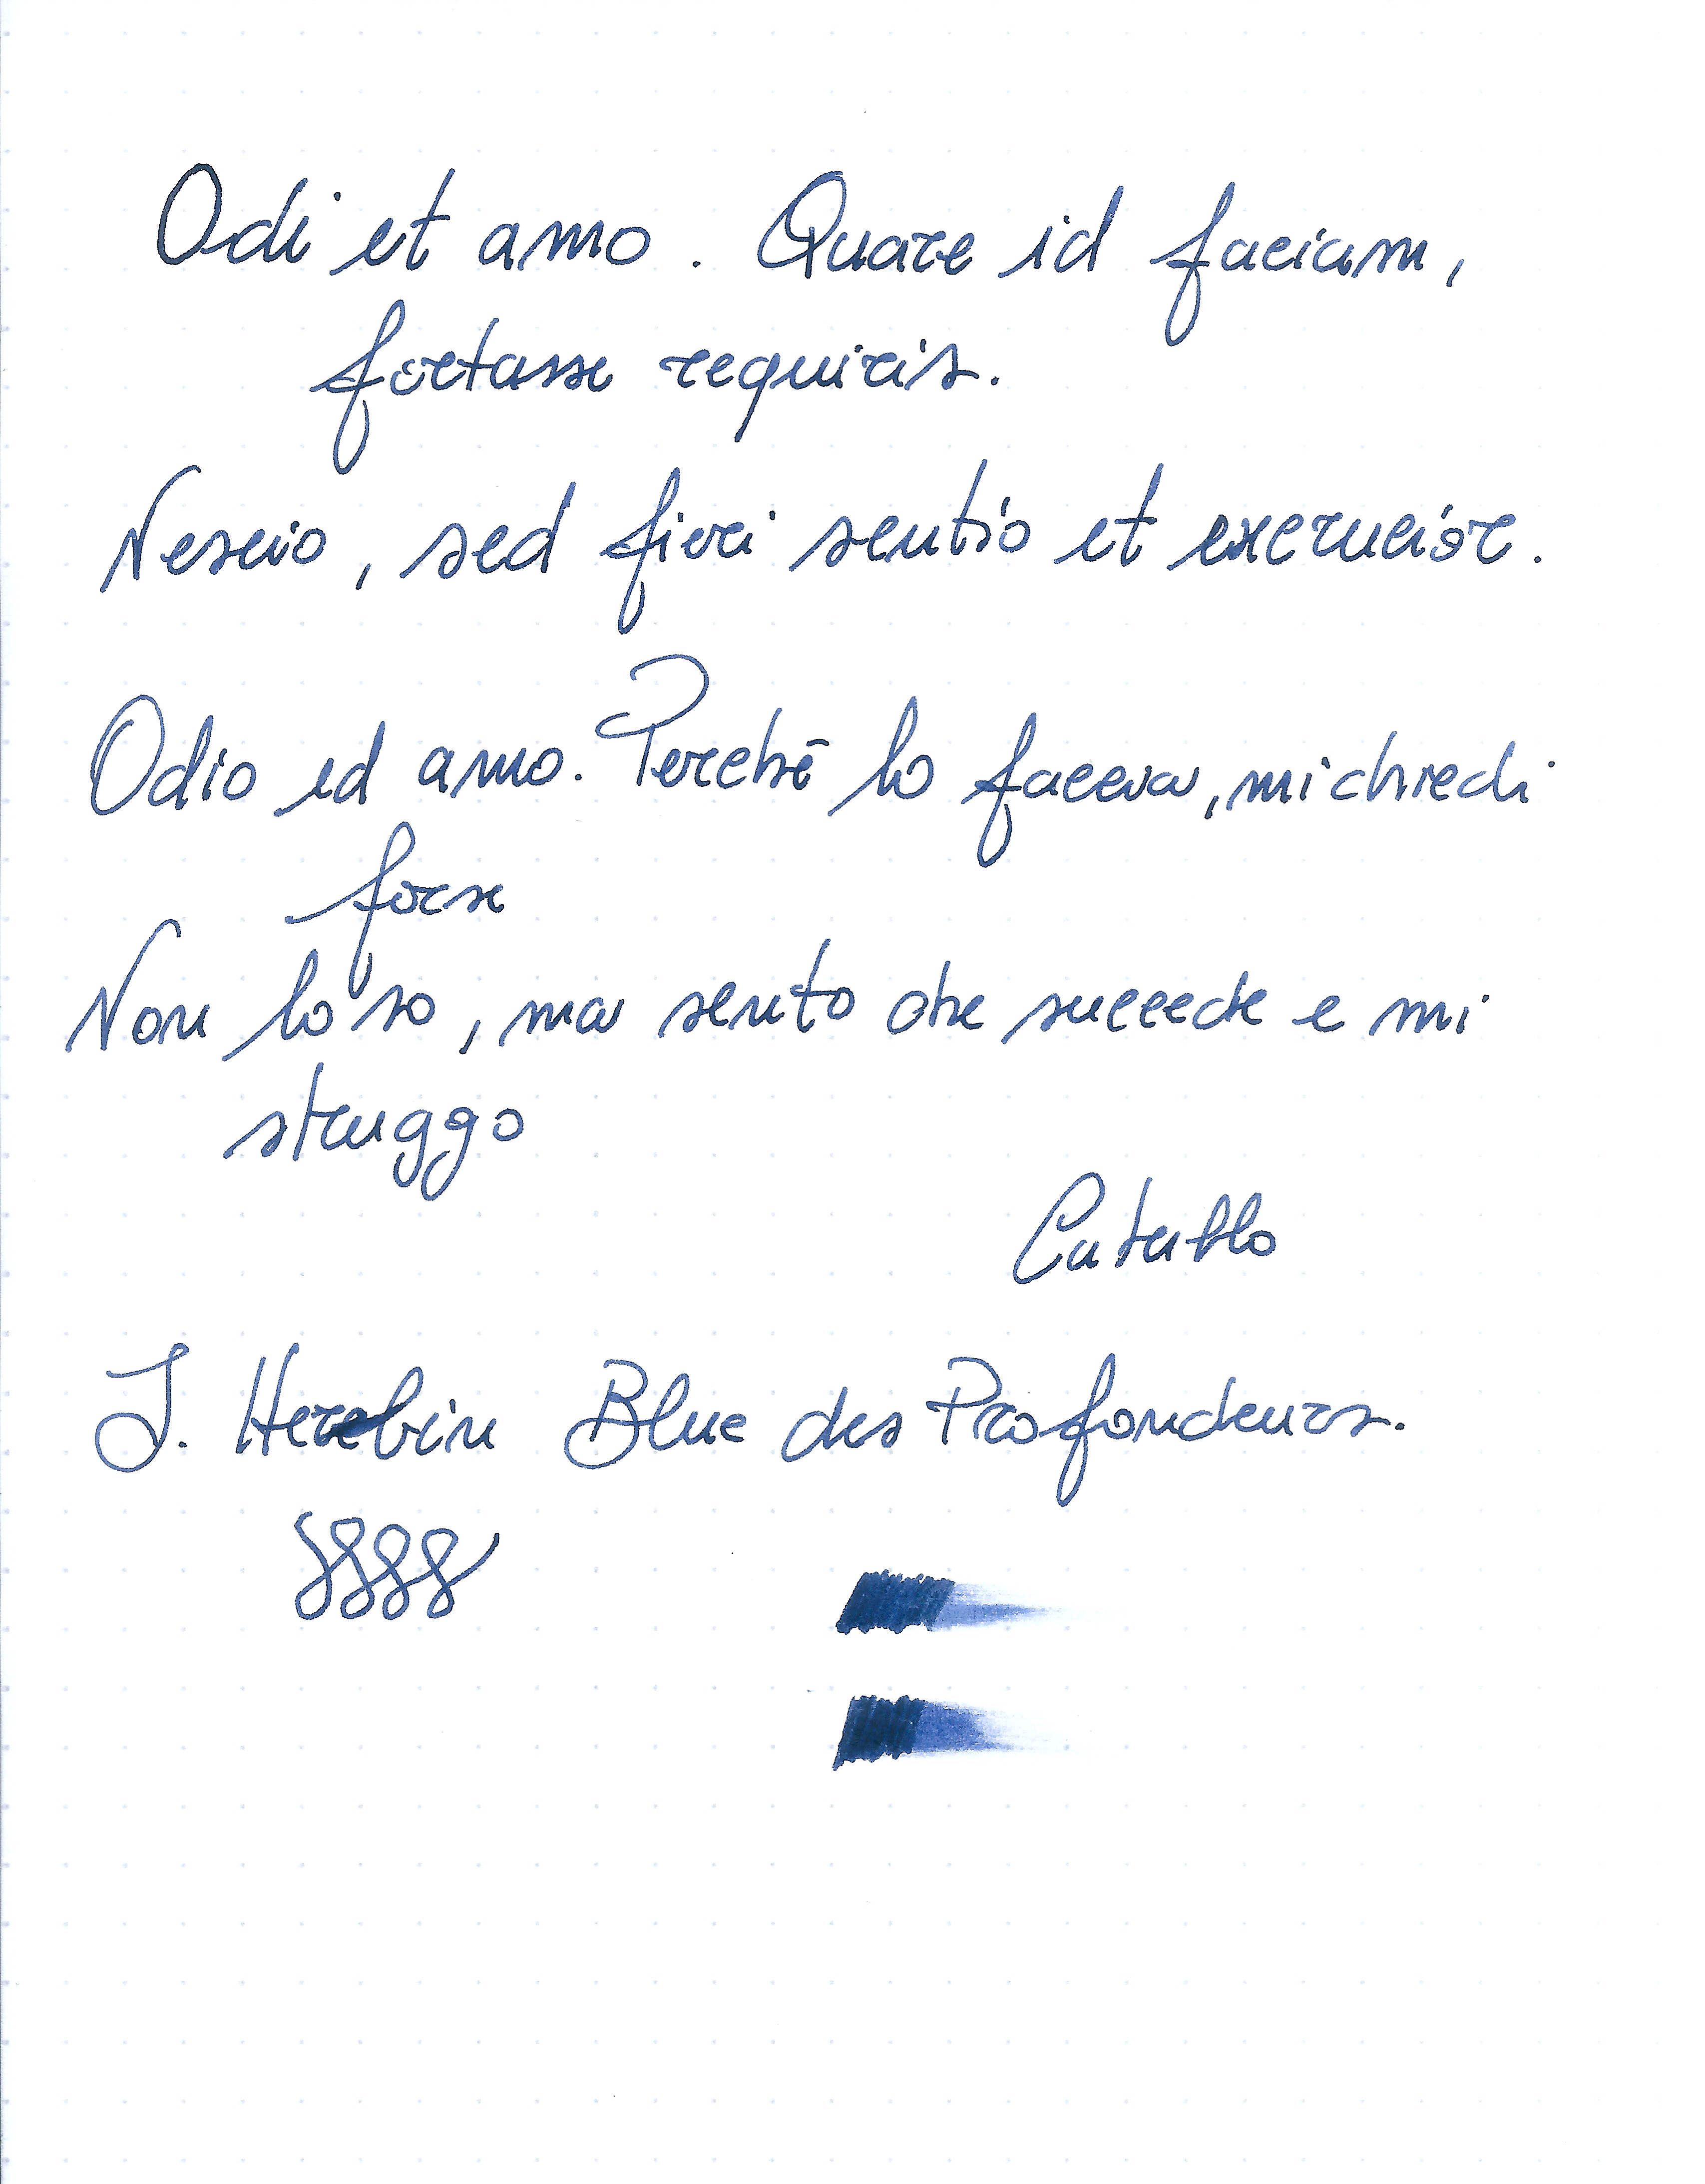 Odi et amo. Quare id faciam,
fortasse requiris.
Nescio, sed fieri sentio et excrucior.
Odio ed amo. Perché lo faccia, mi chiedi
forse
Non lo so, ma sento che succede e mi
struggo
Catullo
J. Herbin Blue des Profondeurs.